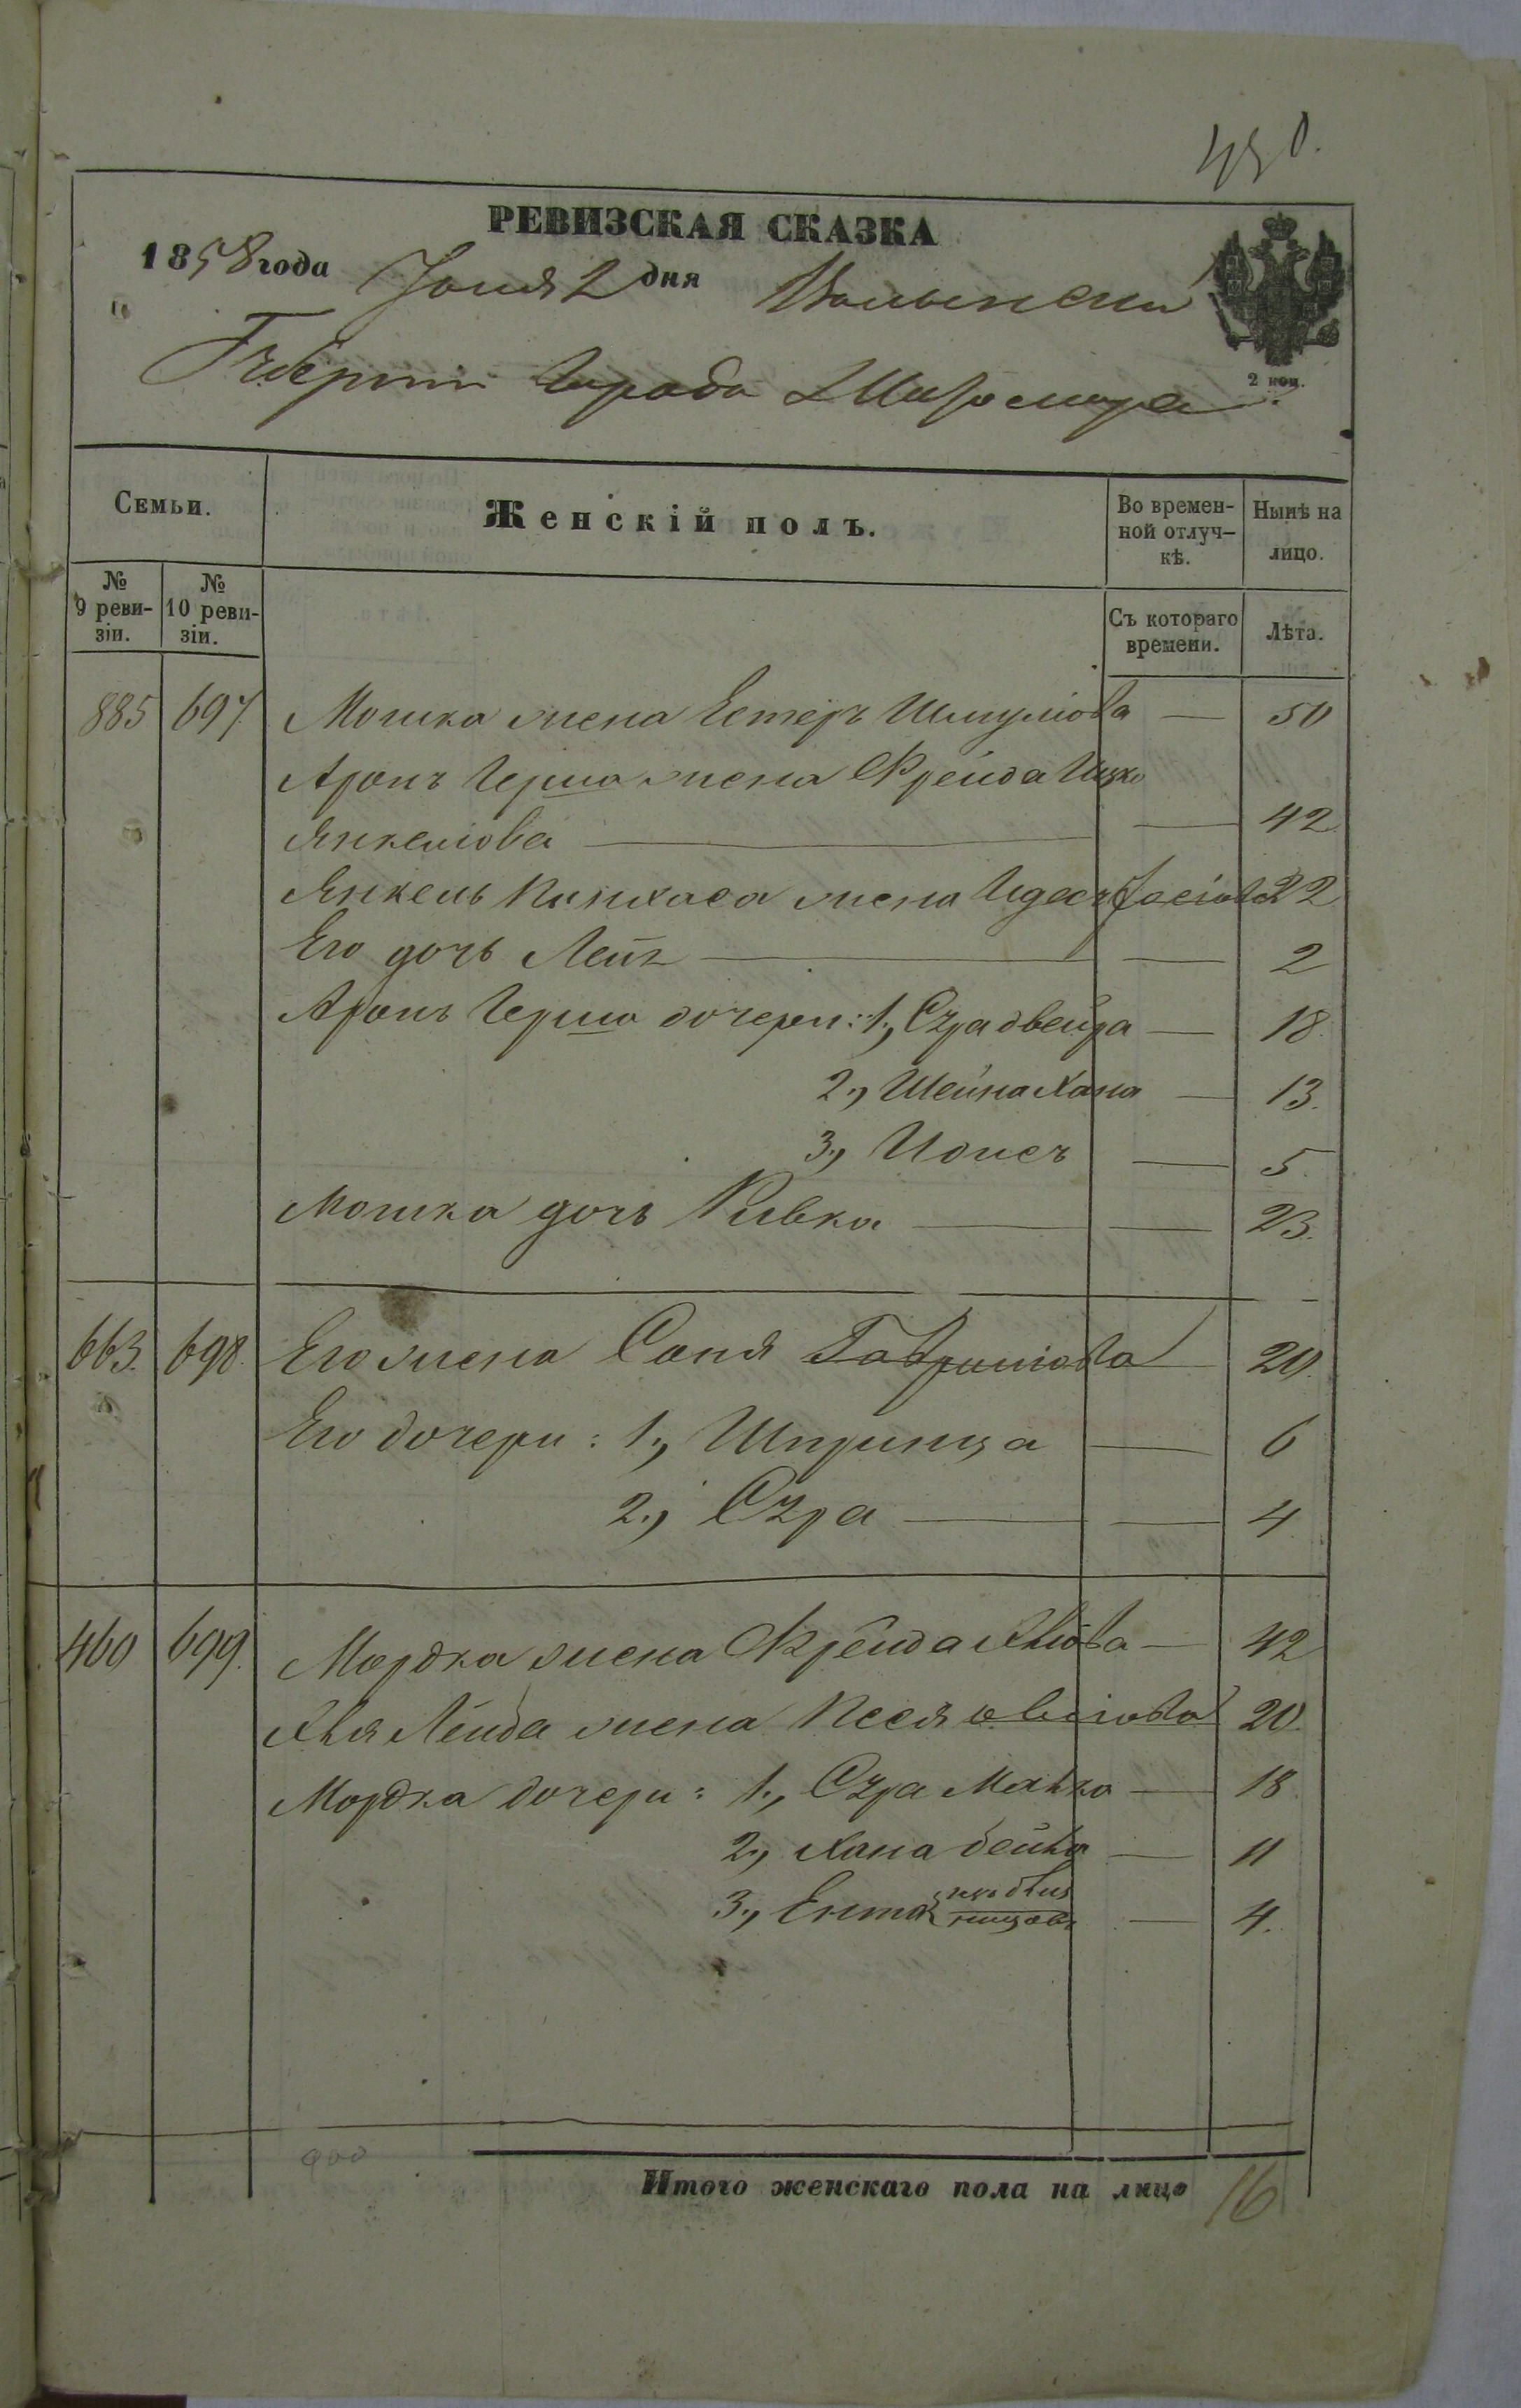 450.
РЕВИЗСКАЯ СКАЗКА
1858 года Іюня 2 дня Волынской
Губерніи Города Житомира
2 коп.
Семьи. Женскій полъ. Во времен-ной отлуч-кѣ. Нынѣ на лицо.
№ 9 реви-зіи. № 10 реви-зіи. Съ котораго времени. Лѣта.
885 697. Мошка жена Естеръ Шмуліова — 50
Аронъ Герша жена Фрейда Ицко
Янкеліова — 42
Янкель Пинхаса жена Идесъ Іосіова 22
Его дочь Лея — 2
Аронъ Герша дочери: 1., Сура двейра — 18.
2., Шейна Хана — 13.
3., — 5.
Мошка дочь Ривка — 23.
663. 698. Его жена Соня Гавриліова 20.
Его дочери: 1., Шпринца — 6
2., Сура — 4
460 699. Мордка жена Фрейда — 42
Лейба жена Песя 20.
Мордка дочери: 1., Сура — 18
2., Хана бейла — 11
3., Ента — 4.
Итого женскаго пола на лицо 16